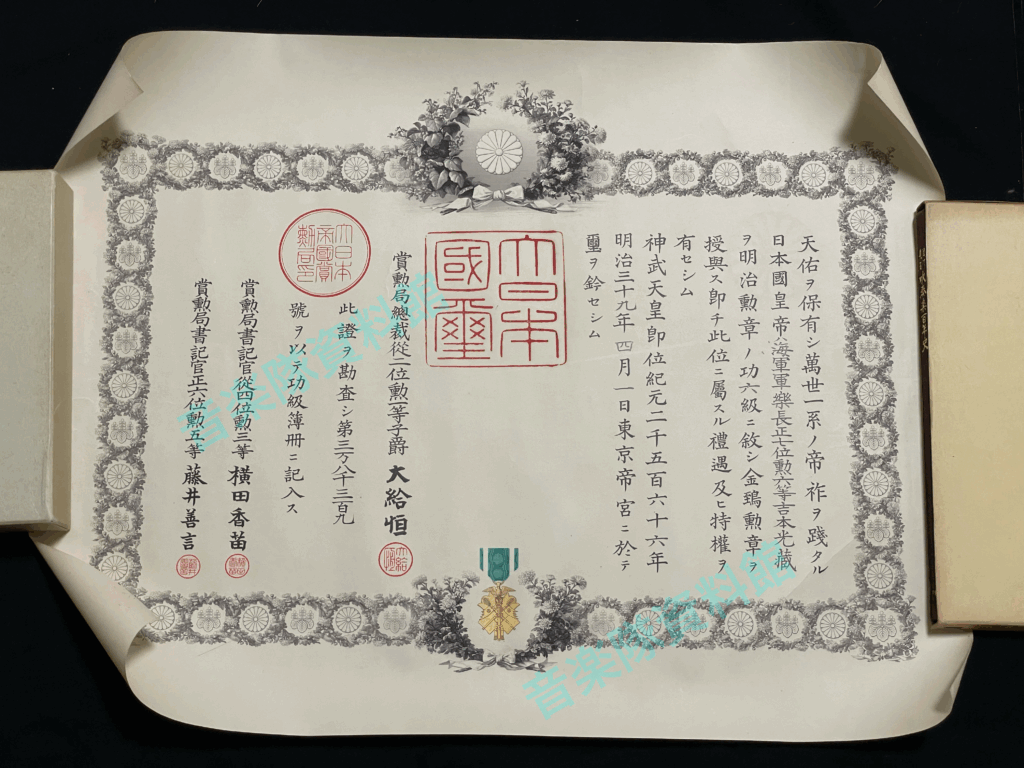 天佑ヲ保有シ萬世一系ノ帝祚ヲ踐タル
日本國皇帝ハ海軍軍樂長正七位勲六等吉本光藏
ヲ明治勲章ノ功六級ニ敘シ金鵄勲章ヲ
授與ス即チ此位ニ屬スル禮遇及ヒ特權ヲ
有セシム
神武天皇即位紀元二千五百六十六年
明治三十九年四月一日東京帝宮ニ於テ
璽ヲ鈐セシム
大日本
國璽
賞勲局總裁從二位勲一等子爵 大給恒
此證ヲ勘査シ第三万八千三百九
號ヲ以テ功級簿册ニ記入ス
大日本
帝國賞
勲局印
賞勲局書記官從四位勲三等 横田香苗
賞勲局書記官正六位勲五等 藤井善言
音楽隊資料館
音楽隊資料館